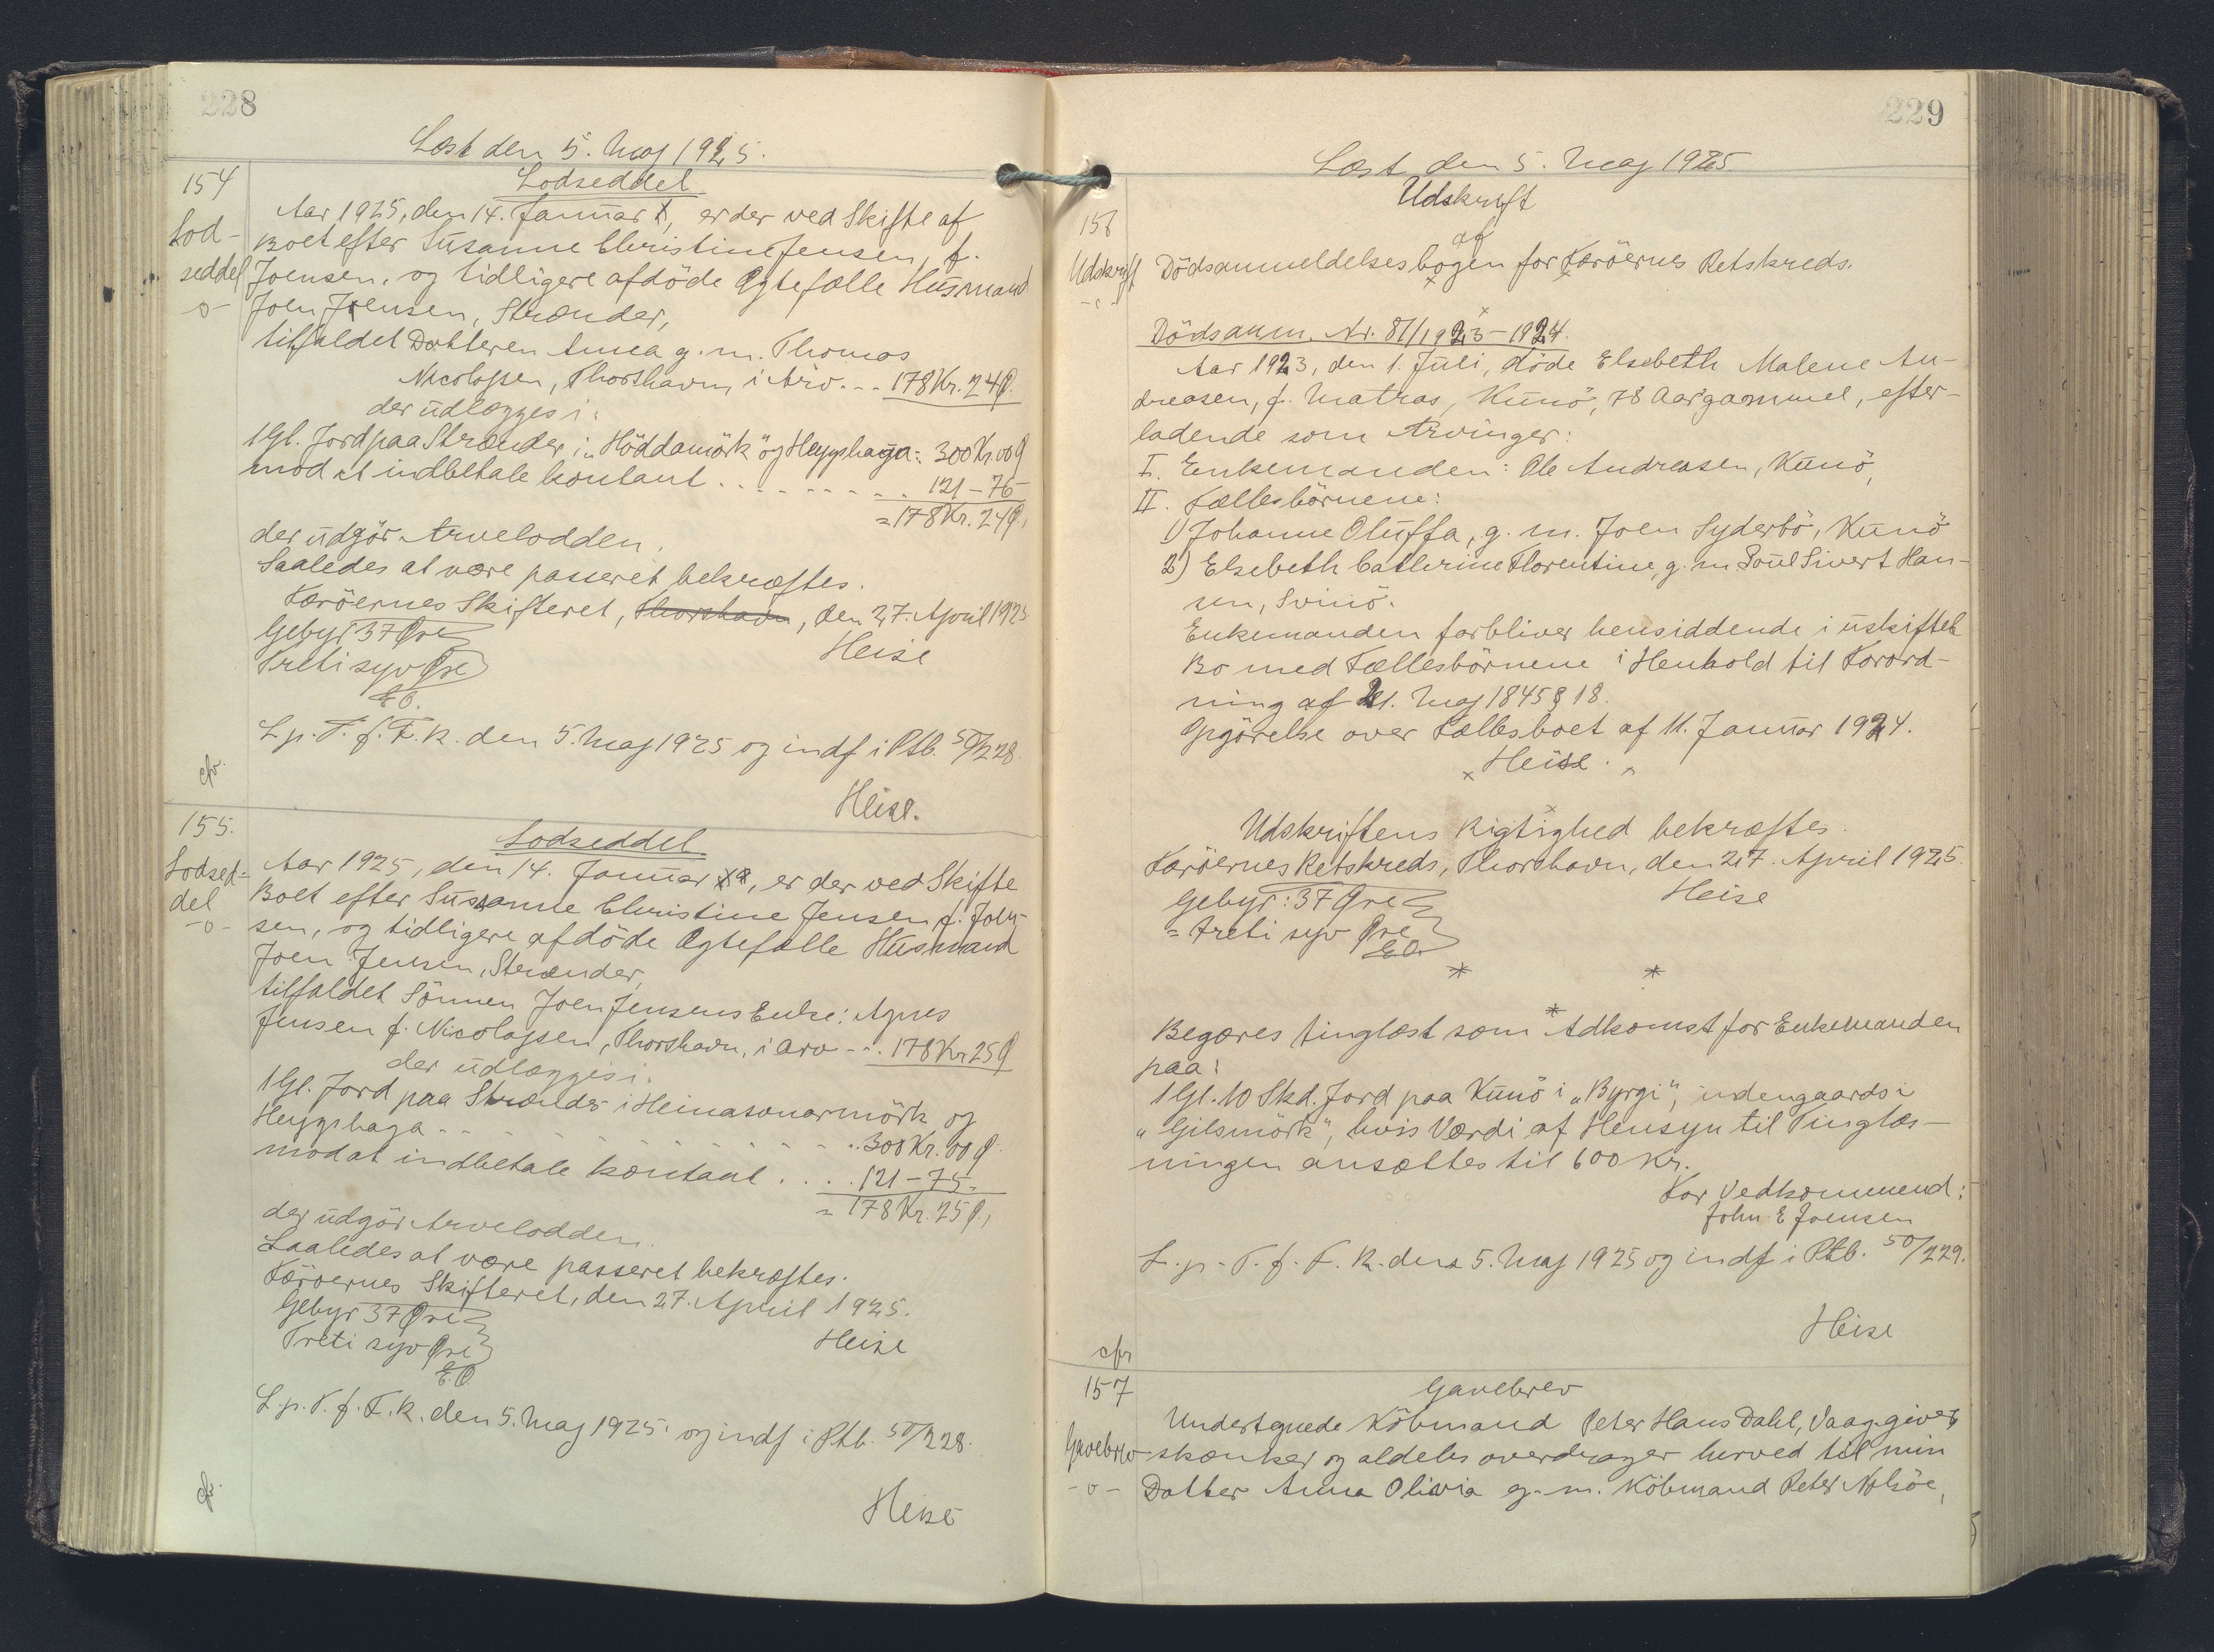 228
Læst den 5. Maj 1925.
154
Lod-
seddel
-o-
Lodseddel
Aar 1925, den 14. Januar, er der ved Skifte af
Boet efter Susanne Christine Jensen, f.
Joensen, og tidligere afdöde Ægtefælle Husmand
Joen Jensen, Strænder,
tilfaldet Datteren Anna g. m. Thomas
Nicolajsen, Thorshavn, i Arv... 178 Kr. 24 Ø.
der udlægges i:
1 Gl. Jord paa Strænder i „Höddamörk" og Heygshaga: 300 Kr. 00 Ø
mod at indbetale kontant . . . . . . . . . 121 - 76 -
= 178 Kr. 24 Ø,
der udgör Arvelodden.
Saaledes at være passeret bekræftes.
Færöernes Skifteret, Thorshavn, den 27. April 1925
Gebyr 37 Øre
Heise
Treti syv Øre
E.O.
L. p. T. f. F. R. den 5. Maj 1925 og indf i Ptb. 50/228.
cfr.
Heise.
155.
Lodsed=
del
-o-
Lodseddel
Aar 1925, den 14. Januar, er der ved Skifte
Boet efter Susanne Christine Jensen f. Joen-
sen, og tidligere afdöde Ægtefælle Husmand
Joen Jensen, Strænder,
tilfaldet Sönnen Joen Jensens Enke: Agnes
Jensen f. Nicolajsen, Thorshavn, i Arv - . . 178 Kr 25 Ø
der udlægges i:
1 Gl. Jord paa Strænder i Heimasonarmörk og
Heygshaga - - - - - - - - - - - - . . 300 Kr. 00 Ø.
mod at indbetale kontant . . . . 121 - 75 -
= 178 Kr. 25 Ø,
der udgör Arvelodden.
Saaledes at være passeret bekræftes.
Færöernes Skifteret, den 27. April 1925.
Gebyr 37 Øre
Heise
Treti syv Øre
E.O.
L. p. T. f. F. R. den 5. Maj 1925 og indf i Ptb. 50/228.
cfr.
Heise
229
Læst den 5. Maj 1925
Udskrift
156
af
Udskrift
-o-
Dödsanmeldelsesbogen for Færöernes Retskreds.
Dödsanm. Nr. 81/1923-1924.
Aar 1923, den 1. Juli, döde Elsebeth Malene An-
dreasen, f. Matras, Kunö, 78 Aar gammel, efter-
ladende som Arvinger:
I. Enkemanden: Ole Andreasen, Kunö,
II. Fællesbörnene:
1) Johanne Oluffa, g. m. Joen Syderbö, Kunö
2) Elsebeth Cathrine Florentine, g. m Poul Sivert Han-
sen, Svinö.
Enkemanden forbliver hensiddende i uskiftet
Bo med Fællesbörnene i Henhold til Forord-
ning af 21. Maj 1845 § 18.
Opgörelse over Fællesboet af 11. Januar 1924.
Heise.
Udskriftens Rigtighed bekræftes.
Færöernes Retskreds, Thorshavn, den 27. April 1925.
Gebyr: 37 Øre
Heise
= treti syv Øre
E.O.
* *
*
Begæres tinglæst som Adkomst for Enkemanden
paa:
1 Gl. 10 Skd. Jord paa Kunö i „Byrgi", udengaards i
„Gilsmörk", hvis Værdi af Hensyn til Tinglæs-
ningen ansættes til 600 Kr.
For Vedkommend:
John E Joensen
L. p. T. f. F. R. den 5. Maj 1925 og indf i Ptb. 50/229.
Heise
cfr
157
Gavebrev
-o-
Gavebrev
Undertegnede Köbmand Peter Hans Dahl, Vaag, giver
skænker og aldeles overdrager herved til min
Datter Anna Olivia g. m. Köbmand Peter Nolsöe,